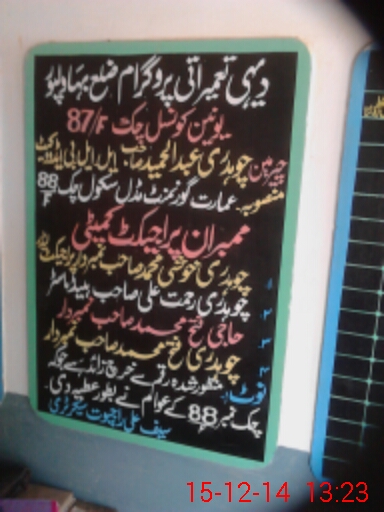 دیہی تعمیراتی پروگرام ضلع بہاولپور
یونین کونسل چک 87/F
چیرمین چوہدری عبدالحمید صاحب ایل ایل بی ایڈووکیٹ
منصوبہ عمارت گورنمنٹ مڈل سکول چک 88/F
ممبران پراجیکٹ کمیٹی
۱ چوہدری خوشی محمد صاحب نمبردار پراجیکٹ
۲ چوہدری رحمت علی صاحب ہیڈ ماسٹر
۳ حاجی فتح محمد صاحب نمبردار
۴ چوہدری فتح محمد صاحب نمبردار
نوٹ: منظور شدہ رقم سے خرچ زائد ہے جوکہ
چک نمبر 88/F کے عوام نے بطور عطیہ دی۔
سیف علی راجپوت سیکرٹری
15-12-14 13:23